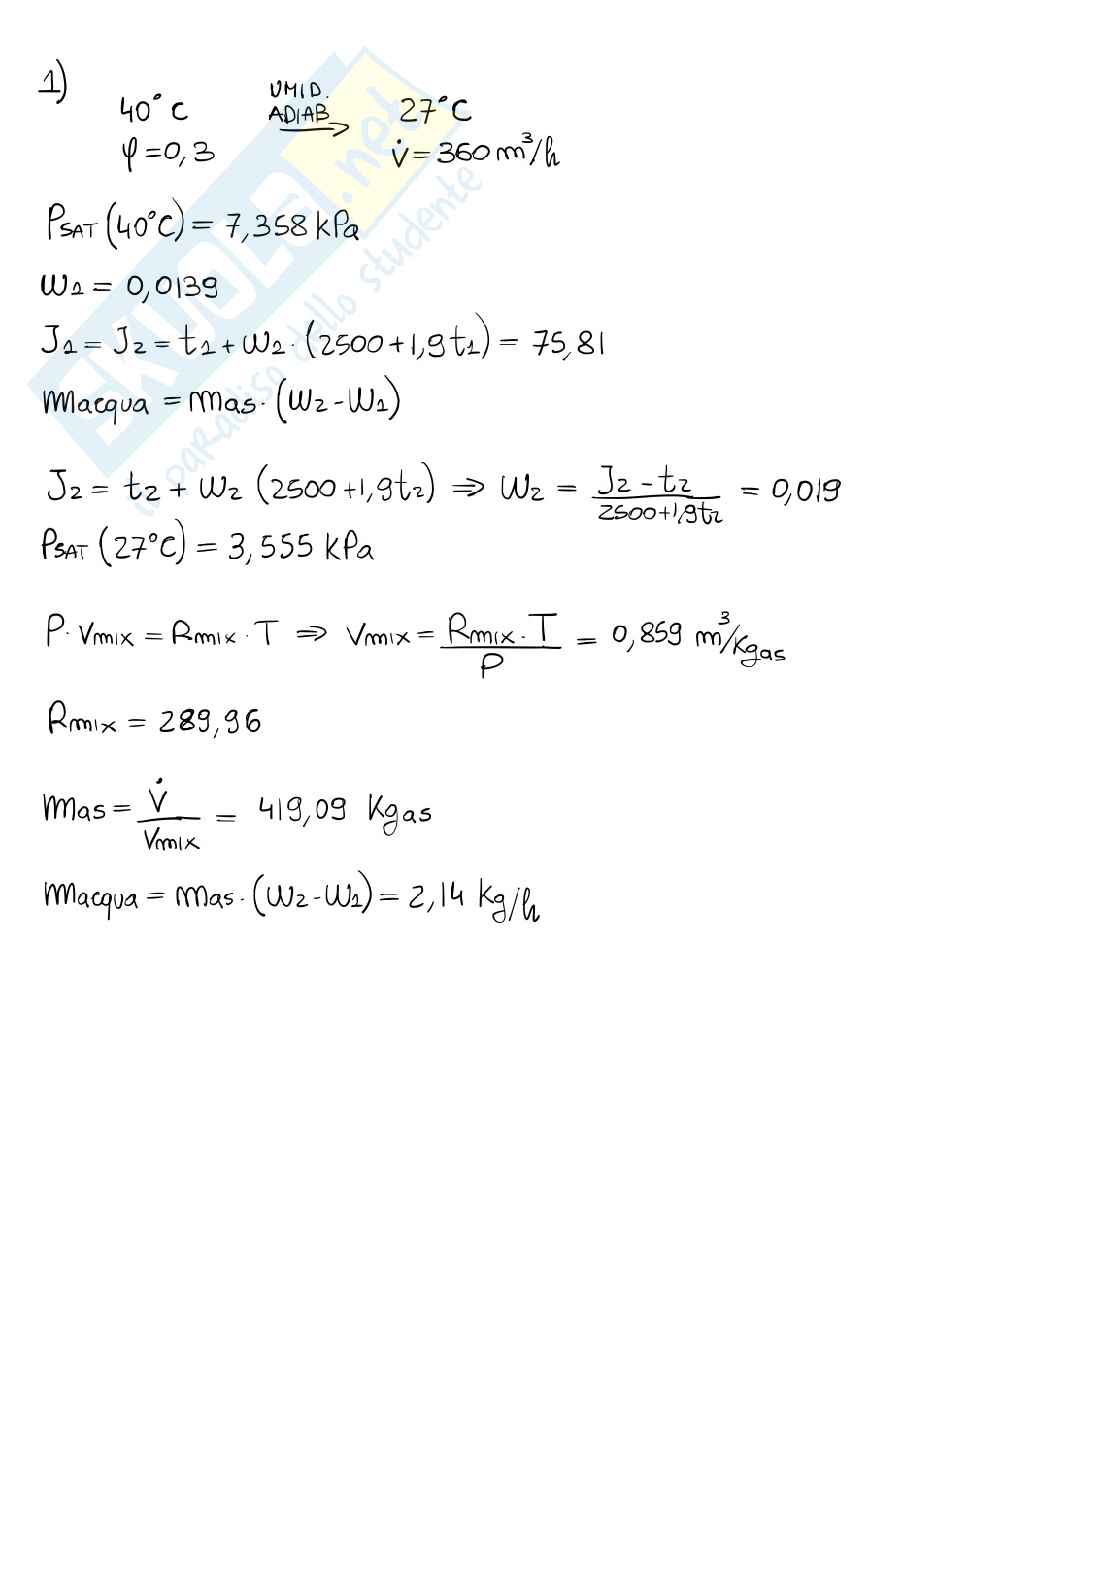 1)
40°C UMID. ADIAB. → 27°C
φ=0,3 V̇=360 m³/h
PSAT (40°C) = 7,358 kPa
W1 = 0,0139
J1 = J2 = t1 + W1 · (2500+1,9t1) = 75,81
macqua = mas · (W2 - W1)
J2 = t2 + W2 (2500+1,9t2) ⇒ W2 = (J2 - t2)/(2500+1,9t2) = 0,019
PSAT (27°C) = 3,555 kPa
P · Vmix = Rmix · T ⇒ Vmix = (Rmix · T)/P = 0,859 m³/Kgas
Rmix = 289,96
mas = V̇/Vmix = 419,09 Kgas
macqua = mas · (W2 - W1) = 2,14 kg/h
SKUOLA.net
il paradiso dello studente